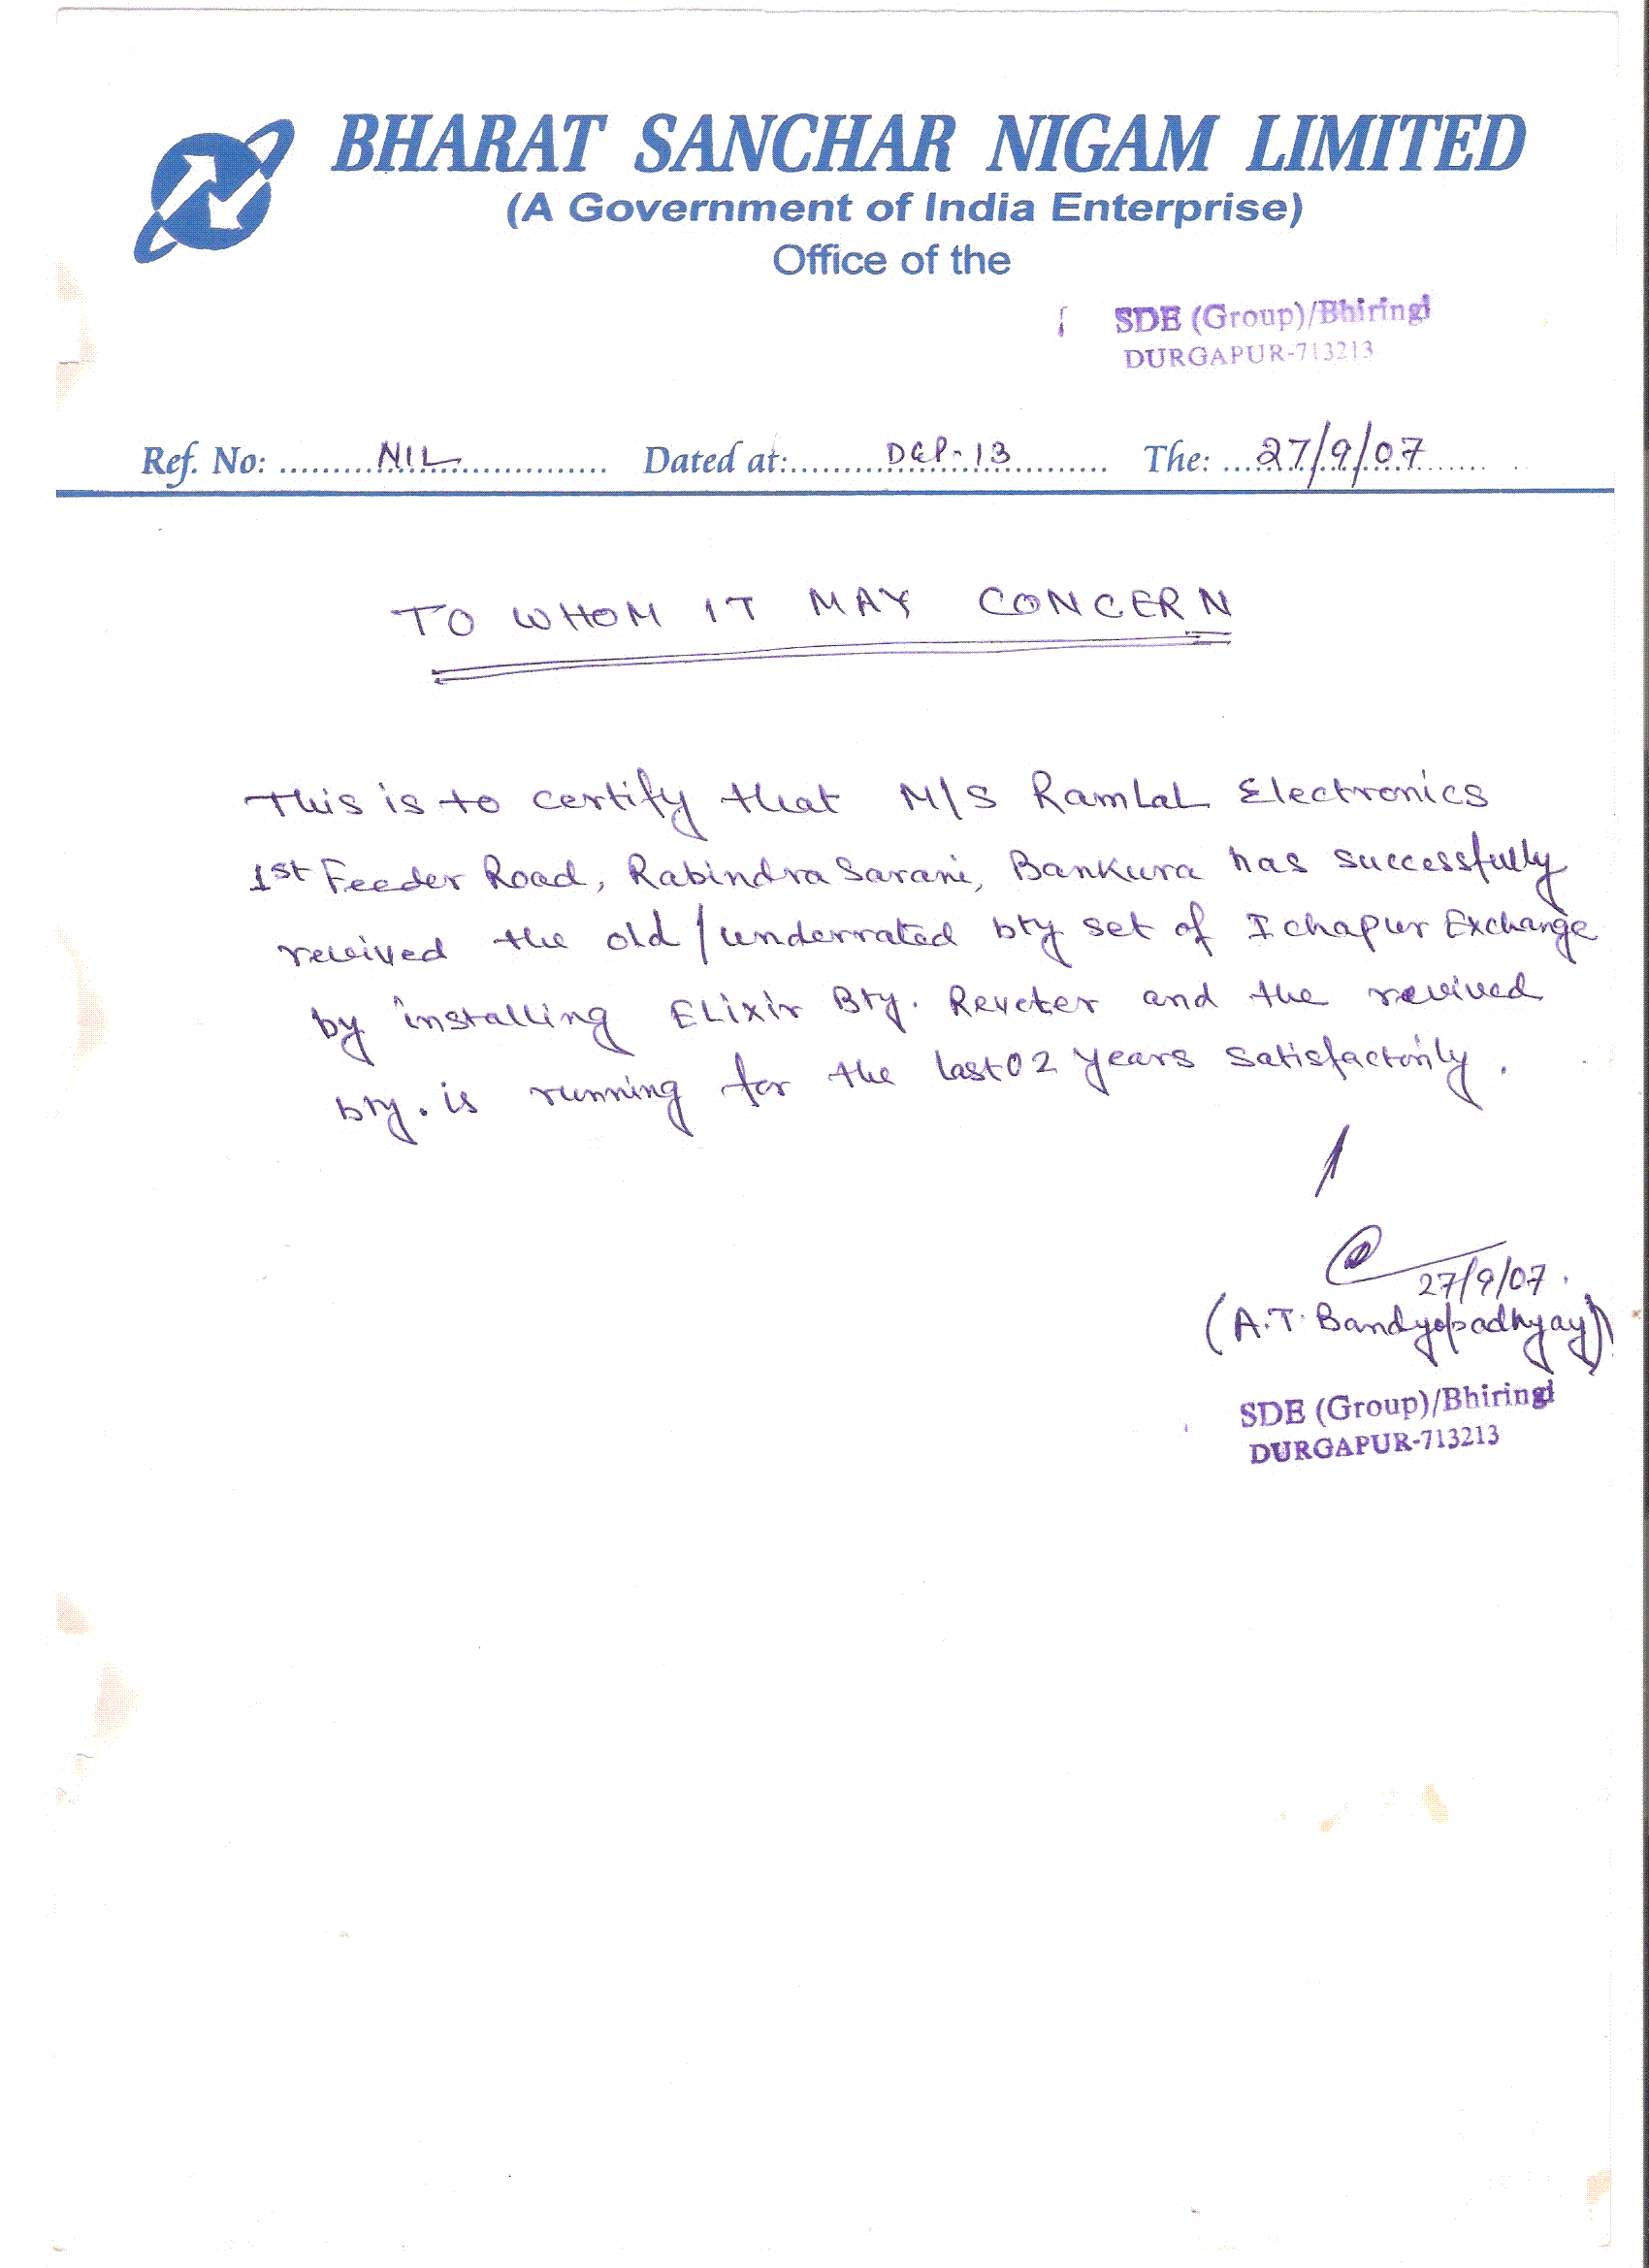 BHARAT SANCHAR NIGAM LIMITED
(A Government of India Enterprise)
Office of the
SDE (Group)/Bhiringi
DURGAPUR-713213
Ref. No: NIL Dated at: DGP-13 The: 27/9/07
TO WHOM IT MAY CONCERN
This is to certify that M/S Ramlal Electronics
1st Feeder Road, Rabindra Sarani, Bankura has successfully
revived the old/underrated bty set of Ichapur Exchange
by installing ELixir Bty. Reveter and the revived
bty. is running for the last 02 years satisfactorily.
27/9/07.
(A.T. Bandyopadhyay)
SDE (Group)/Bhiringi
DURGAPUR-713213